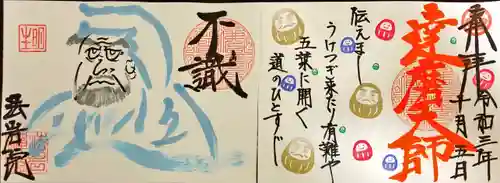 奉拝
令和三年
十月十五日
達磨大師
伝えきし
うけつぎ来たり有難や
五葉に開く
道のひとすじ
不識